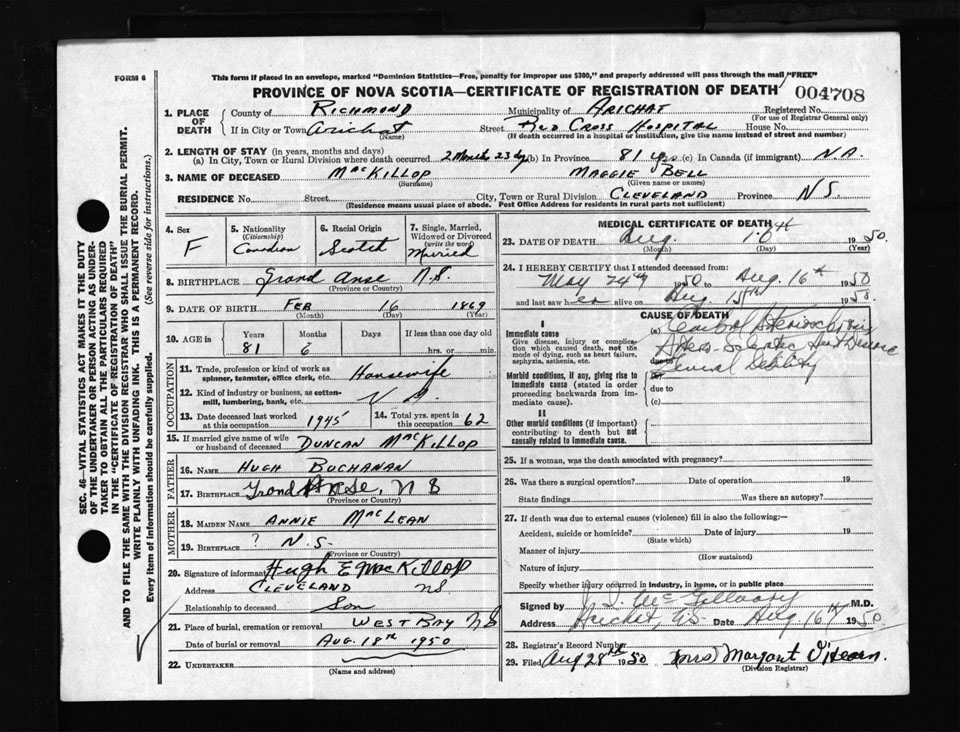 FORM 6
This form if placed in an envelope, marked "Dominion Statistics—Free, penalty for improper use $300," and properly addressed will pass through the mail "FREE"
PROVINCE OF NOVA SCOTIA—CERTIFICATE OF REGISTRATION OF DEATH 004708
1. PLACE OF DEATH County of Richmond Municipality of Arichat Registered No.
(For use of Registrar General only)
If in City or Town Arichat (Name) Street Red Cross Hospital House No.
(If death occurred in a hospital or institution, give the name instead of street and number)
2. LENGTH OF STAY (in years, months and days)
(a) In City, Town or Rural Division where death occurred 2 Months 23 dys (b) In Province 81 yrs (c) In Canada (if immigrant) N.A.
3. NAME OF DECEASED MacKillop Maggie Bell
(Surname) (Given name or names)
RESIDENCE No. Street City, Town or Rural Division Cleveland Province N.S.
(Residence means usual place of abode. Post Office Address for residents in rural parts not sufficient)
4. Sex F
5. Nationality (Citizenship) Canadian
6. Racial Origin Scotch
7. Single, Married, Widowed or Divorced (write the word) Married
8. BIRTHPLACE Grand Anse N.S.
(Province or Country)
9. DATE OF BIRTH Feb 16 1869
(Month) (Day) (Year)
10. AGE in Years 81 Months 6 Days If less than one day old hrs. or min.
OCCUPATION
11. Trade, profession or kind of work as spinner, teamster, office clerk, etc. Housewife
12. Kind of industry or business, as cotton-mill, lumbering, bank, etc. N A
13. Date deceased last worked at this occupation 1945
14. Total yrs. spent in this occupation 62
15. If married give name of wife or husband of deceased Duncan MacKillop
FATHER
16. NAME Hugh Buchanan
17. BIRTHPLACE Grand Anse, N S
(Province or Country)
MOTHER
18. MAIDEN NAME Annie MacLean
19. BIRTHPLACE ? N.S.
(Province or Country)
20. Signature of informant Hugh E MacKillop
Address Cleveland NS
Relationship to deceased Son
21. Place of burial, cremation or removal West Bay N S
Date of burial or removal Aug. 18th 1950
22. UNDERTAKER
(Name and address)
MEDICAL CERTIFICATE OF DEATH
23. DATE OF DEATH Aug. 1950
(Month) (Day) (Year)
24. I HEREBY CERTIFY that I attended deceased from:
May 24th 1950 to Aug. 16th 1950
and last saw her alive on Aug 15th 1950
CAUSE OF DEATH
I
Immediate cause
Give disease, injury or complication which caused death, not the mode of dying, such as heart failure, asphyxia, asthenia, etc.
(a)
Heart Disease
due to General Debility
Morbid conditions, if any, giving rise to immediate cause (stated in order proceeding backwards from immediate cause).
due to
(c)
II
Other morbid conditions (if important) contributing to death but not causally related to immediate cause.
25. If a woman, was the death associated with pregnancy?
26. Was there a surgical operation? Date of operation 19
State findings Was there an autopsy?
27. If death was due to external causes (violence) fill in also the following:—
Accident, suicide or homicide? Date of injury 19
(State which)
Manner of injury
(How sustained)
Nature of injury
Specify whether injury occurred in industry, in home, or in public place
Signed by M.D.
Address Arichat, NS. Date Aug. 16th 1950
28. Registrar's Record Number
29. Filed Aug 28th 1950 Mrs Margaret O'Hearn.
(Division Registrar)
SEC. 46—VITAL STATISTICS ACT MAKES IT THE DUTY
OF THE UNDERTAKER OR PERSON ACTING AS UNDER-
TAKER TO OBTAIN ALL THE PARTICULARS REQUIRED
IN THE "CERTIFICATE OF REGISTRATION OF DEATH"
AND TO FILE THE SAME WITH THE DIVISION REGISTRAR WHO SHALL ISSUE THE BURIAL PERMIT.
WRITE PLAINLY WITH UNFADING INK. THIS IS A PERMANENT RECORD.
Every item of information should be carefully supplied. (See reverse side for instructions.)